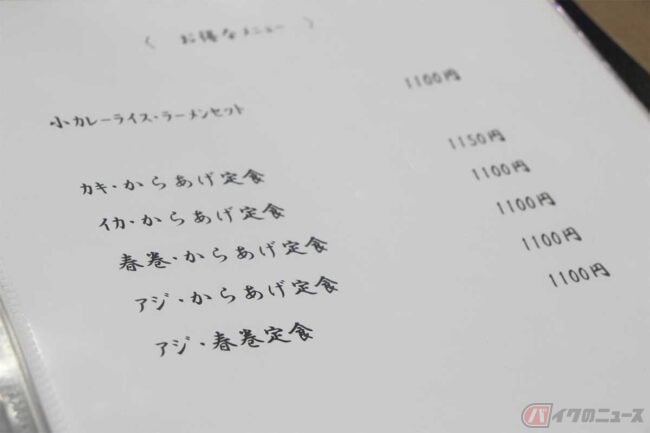 〈 お得なメニュー 〉
小カレーライス・ラーメンセット 1100円
カキ・からあげ定食 1150円
イカ・からあげ定食 1100円
春巻・からあげ定食 1100円
アジ・からあげ定食 1100円
アジ・春巻定食 1100円
バイクのニュース